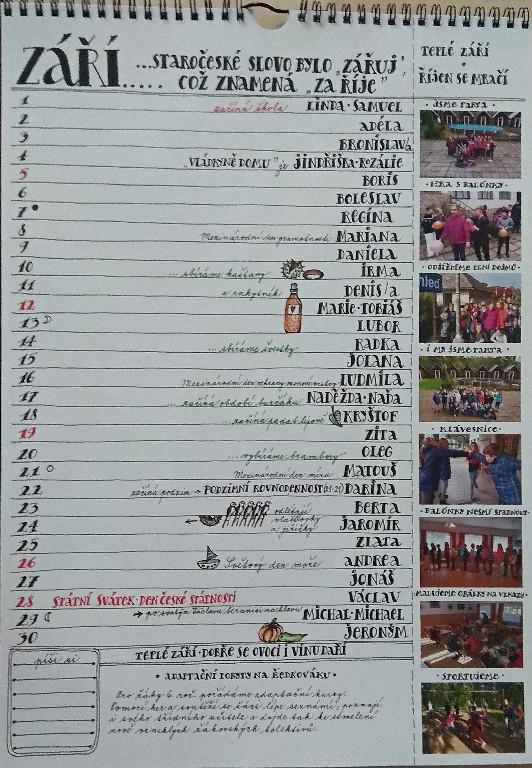 ZÁŘÍ
...STAROČESKÉ SLOVO BYLO „ZÁŘUJ",
..... COŽ ZNAMENÁ „ZA ŘÍJE"
1 začíná škola LINDA·SAMUEL
2 ADÉLA
3 BRONISLAV/A
4 „VLÁDKYNĚ DOMU" je JINDŘIŠKA·ROZÁLIE
5 BORIS
6 BOLESLAV
7 REGÍNA
8 Mezinárodní den gramotnosti MARIANA
9 DANIELA
10 ...sbíráme kaštany IRMA
11 a rakytník DENIS/A
12 MARIE·TOBIÁŠ
13 LUBOR
14 ...sbíráme švestky RADKA
15 JOLANA
16 Mezinárodní den ochrany ozonové vrstvy LUDMILA
17 ...začíná období burčáku NADĚŽDA·NAĎA
18 ...začíná padat listí KRYŠTOF
19 ZITA
20 ...vybíráme brambory OLEG
21 Mezinárodní den míru MATOUŠ
22 začíná podzim → PODZIMNÍ ROVNODENNOST DARINA
23 odlétají BERTA
24 vlaštovky a jiřičky JAROMÍR
25 ZLATA
26 Světový den moře ANDREA
27 JONÁŠ
28 STÁTNÍ SVÁTEK·DEN ČESKÉ STÁTNOSTI VÁCLAV
29 → po svatém Václavu MICHAL·MICHAEL
30 JERONÝM
TEPLÉ ZÁŘÍ·DOBŘE SE OVOCI I VÍNU DAŘÍ
píši si
• ADAPTAČNÍ POBYTY NA ŘEDKOVÁKU •
Pro žáky 6. roč. pořádáme adaptační kurzy.
Pomocí her a soutěží se žáci lépe seznámí, poznají
i svého třídního učitele a dojde tak ke stmelení
nově vzniklých žákovských kolektivů.
TEPLÉ ZÁŘÍ
•
ŘÍJEN SE MRAČÍ
·JSME PARTA·
·HRA S BALÓNKY·
·ODJÍŽDÍME PLNI DOJMŮ·
·I MY JSME PARTA·
·KLÁVESNICE·
·BALÓNKY NESMÍ SPADNOUT·
·MALUJEME OBÁLKY NA VZKAZY·
·SPORTUJEME·